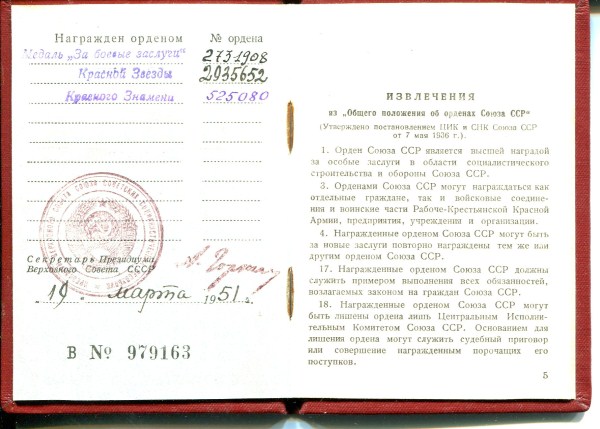 Награжден орденом
№ ордена
Медаль „За боевые заслуги"
2731908
Красной Звезды
2935652
Красного Знамени
525080
Секретарь Президиума
Верховного Совета СССР
19 марта 1951 г.
В № 979163
ИЗВЛЕЧЕНИЯ
из „Общего положения об орденах Союза ССР"
(Утверждено постановлением ЦИК и СНК Союза ССР
от 7 мая 1936 г.).
1. Орден Союза ССР является высшей наградой
за особые заслуги в области социалистического
строительства и обороны Союза ССР.
3. Орденами Союза ССР могут награждаться как
отдельные граждане, так и войсковые соедине-
ния и воинские части Рабоче-Крестьянской Красной
Армии, предприятия, учреждения и организации.
4. Награжденные орденом Союза ССР могут быть
за новые заслуги повторно награждены тем же или
другим орденом Союза ССР.
17. Награжденные орденом Союза ССР должны
служить примером выполнения всех обязанностей,
возлагаемых законом на граждан Союза ССР.
18. Награжденные орденом Союза ССР могут
быть лишены ордена лишь Центральным Исполни-
тельным Комитетом Союза ССР. Основанием для
лишения ордена могут служить судебный приговор
или совершение награжденным порочащих его
поступков.
5